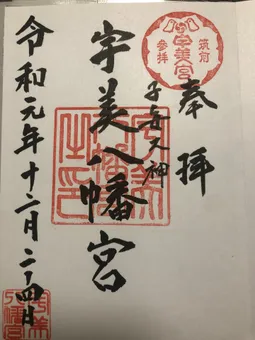 筑前
宇美宮
參拝
奉拝
子安大神
宇美八幡宮
令和元年十二月二十四日
宇美八幡宮